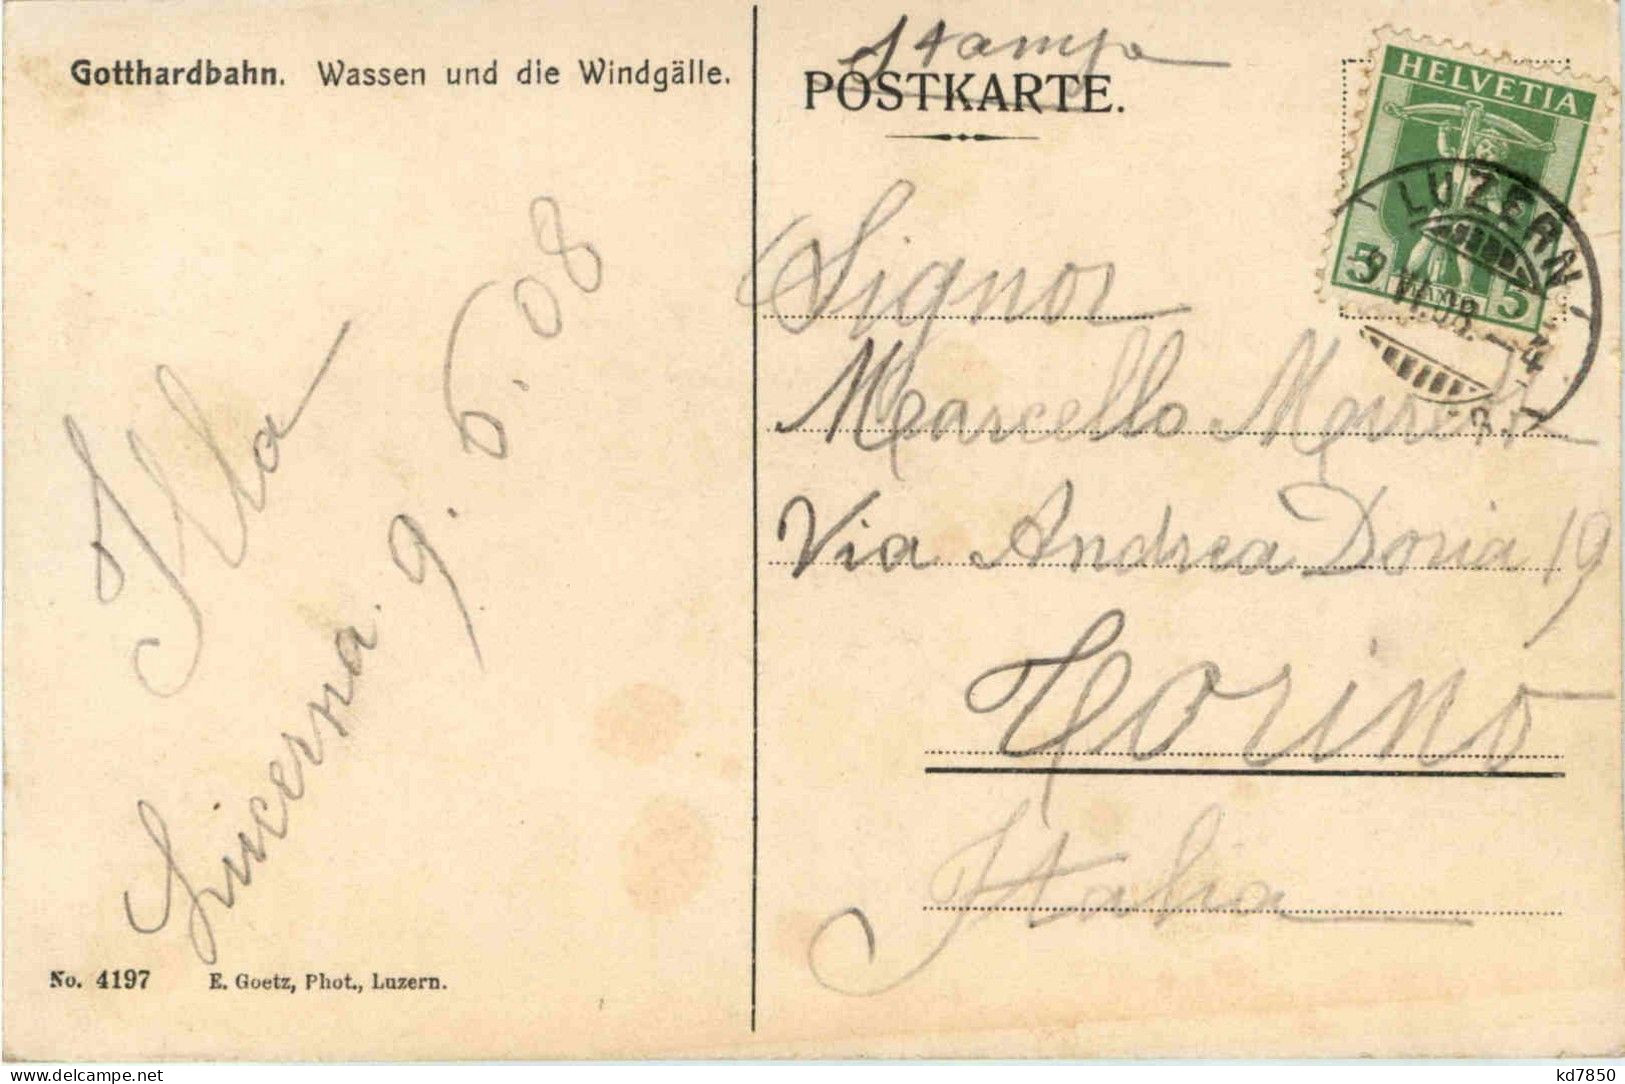 Gotthardbahn. Wassen und die Windgälle.
Illa
Lucerna. 9. 6. 08
No. 4197 E. Goetz, Phot., Luzern.
Stampe
POSTKARTE.
HELVETIA
5 5
LUZERN
-9.VI.08.-4
Signor
Marcello
Via Andrea Doria 19
Torino
Italia
Delcampe.net
kd7850